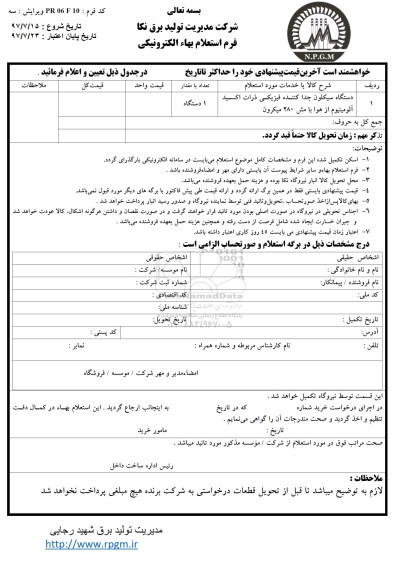 بسمه تعالی
کد فرم : PR 06 F 10 ویرایش : سه
شرکت مدیریت تولید برق نکا
تاریخ شروع : ۹۷/۷/۱۵
فرم استعلام بهاء الکترونیکی
تاریخ پایان اعتبار : ۹۷/۷/۲۳
N.P.G.M
خواهشمند است آخرین قیمت پیشنهادی خود را حداکثر تا تاریخ درجدول ذیل تعیین و اعلام فرمائید .
ردیف شرح کالا یا خدمات مورد استعلام تعداد یا مقدار قیمت واحد قیمت کل ملاحظات
۱ دستگاه سیکلون جدا کننده فیزیکسی ذرات اکسید آلومینیوم از هوا با مش ۲۸۰ میکرون ۱ دستگاه
جمع کل به حروف:
تذکر مهم : زمان تحویل کالا حتماً قید گردد.
۱- اسکن تکمیل شده این فرم و مشخصات کامل موضوع استعلام می‌بایست در سامانه الکترونیکی بارگذاری گردد.
۲- فرم استعلام بهاء سایر شرایط پیوست آن بایستی دارای مهر و امضاء فروشنده باشد .
۳- محل تحویل کالا انبار نیروگاه نکا بوده و هزینه حمل بعهده فروشنده می‌باشد.
۴- قیمت پیشنهادی بایستی فقط در همین برگه ارائه گردد و ارائه قیمت طی پیش فاکتور یا برگه های دیگر مورد قبول نمی‌باشد.
۵- بهای کالا پس از اخذ صورتحساب ،تحویل و تائید فنی توسط نماینده نیروگاه و صدور رسید انبار پرداخت خواهد شد .
۶- اجناس تحویلی در نیروگاه در صورت اصلی بودن مورد تائید قرار خواهند گرفت و در صورت نقصان و داشتن هرگونه اشکال، کالا عودت خواهد شد و جبران خسارت ایجاد شده شامل فرصت از دست رفته و همچنین هزینه حمل بعهده فروشنده می‌باشد .
۷- اعتبار زمان قیمت پیشنهادی می بایست ۴۵ روز کاری اعتبار داشته باشد.
درج مشخصات ذیل در برگه استعلام و صورتحساب الزامی است :
اشخاص حقیقی اشخاص حقوقی
نام و نام خانوادگی : نام موسسه/ شرکت :
نام فروشنده / پیمانکار: شماره ثبت شرکت :
کد ملی: کد اقتصادی :
شناسه ملی:
تاریخ تکمیل : تاریخ تحویل:
آدرس: کد پستی :
تلفن : نام کارشناس مربوطه و شماره همراه : نمابر :
امضاءمدیر و مهر شرکت / موسسه / فروشگاه
این قسمت توسط نیروگاه تکمیل خواهد شد .
در اجرای درخواست خرید شماره که در تاریخ به اینجانب ارجاع گردید . این استعلام بهاء در کمال دقت تنظیم و اخذ گردید و صحت مندرجات آن را گواهی می‌نمایم .
تاریخ : مامور خرید
صحت مراتب فوق در مورد استعلام از شرکت / مؤسسه مذکور مورد تائید میباشد .
رئیس اداره ساخت داخل
ملاحظات :
لازم به توضیح میباشد تا قبل از تحویل قطعات درخواستی به شرکت برنده هیچ مبلغی پرداخت نخواهد شد
مدیریت تولید برق شهید رجایی
http://www.rpgm.ir